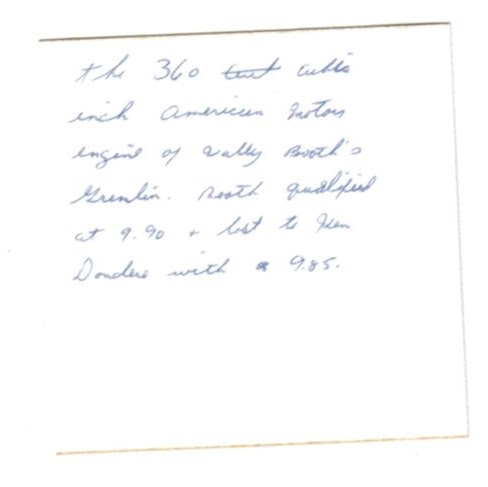 the 360 cubic
inch American Motors
engine of Wally Booth's
Gremlin. Booth qualified
at 9.90 + lost to Ken
Dondero with a 9.85.